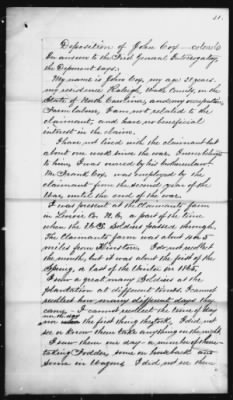 21.
Deposition of John Cox - colored
In answer to the First General Interrogatory
the Deponent says.
My name is John Cox, my age 21 years.
my residence Raleigh Wake County, in the
State of North Carolina, and my occupation
Farm labourer, I am not related to the
claimant, and have no beneficial
interest in the claim.
I have not lived with the claimant but
about one week since the war.
to being I was owned by his
Mr Frank Cox, was employed by the
claimant from the second year of the
War, until the end of the war.
I was present at the Claimants farm
in Lenoir Co. N.C. a part of the time
when the U.S. soldiers passed through.
The Claimants farm was about 4 to 5
miles from Kinston. I do not recollect
the month, but it was about the first of the
Spring, or last of the Winter in 1865.
I saw a great many Soldiers at the
plantation at different times. I cannot
recollect how many different days they
came, I cannot recollect the time of day
the first thing they took, I did not
see or know them take anything in the night.
I saw them one day - a number of them
taking Fodder, some on horseback and
some in Wagons. I did not see them